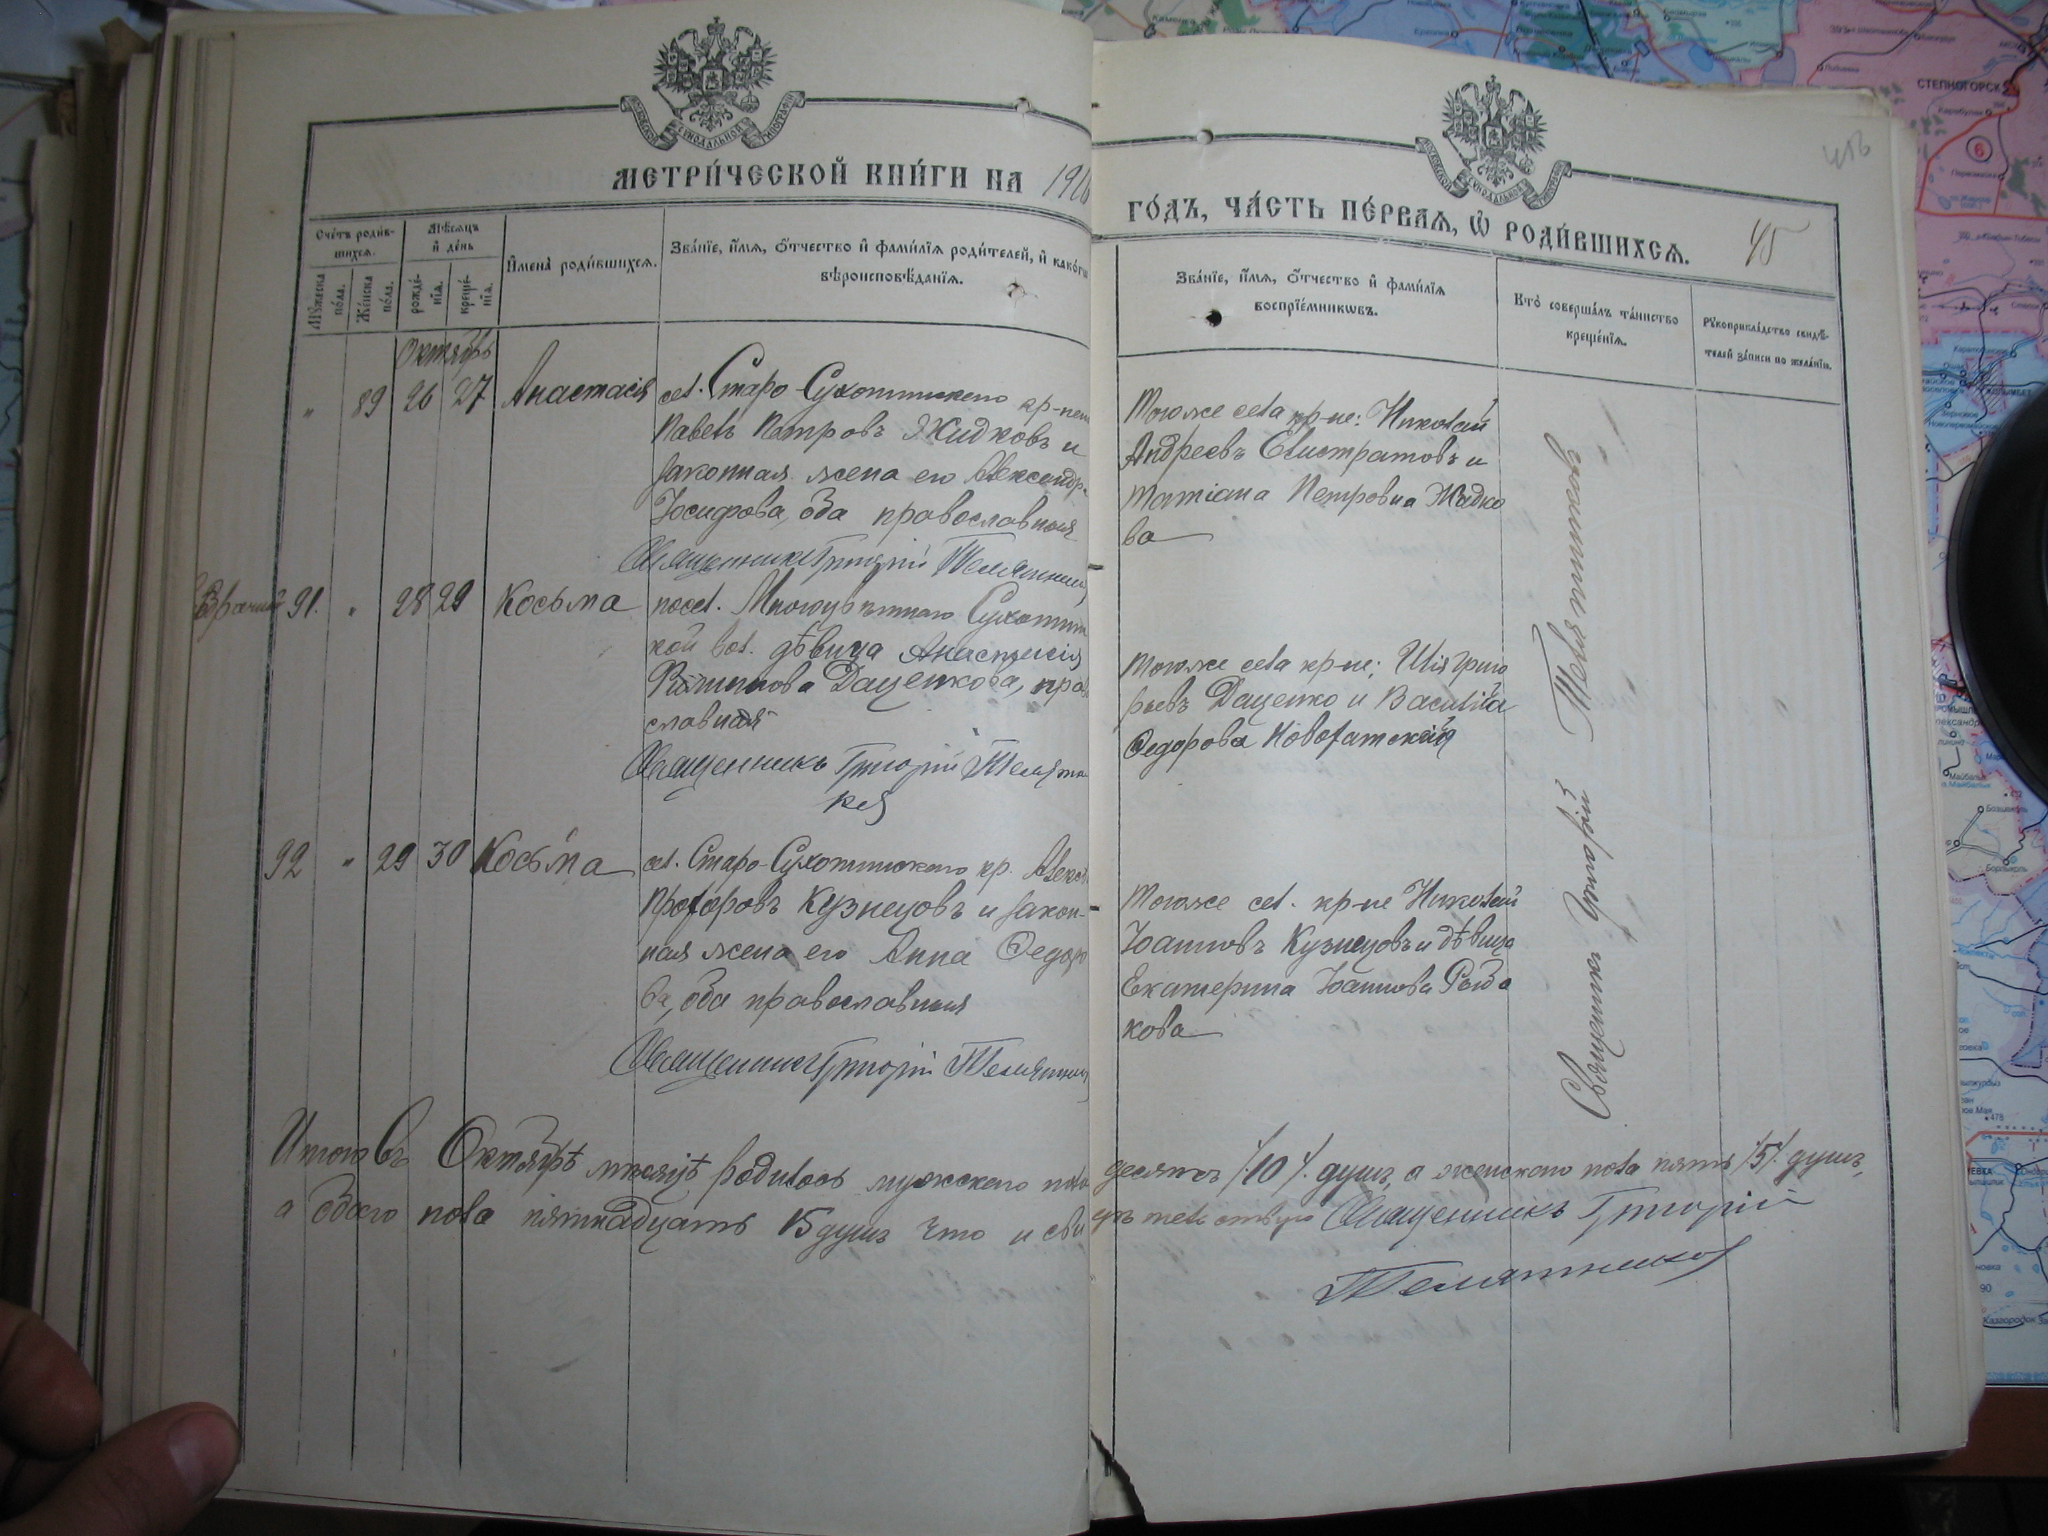 МЕТРИ́ЧЕСКОЙ КНИ́ГИ НА 1916
ГО́ДЪ, ЧА́СТЬ ПЕ́РВАЯ, Ѽ РОДИ́ВШИХСЯ. 45
Сче́тъ роди́в-
шихся.
Му́жеска по́ла.
Же́нска по́ла.
Мѣ́сяцъ
и де́нь
рожде́нїя.
креще́нїя.
Имена̀ роди́вшихся.
Зва́нїе, и́мя, о́тчество и фами́лїя роди́телей, и како́гw
вѣроисповѣ́данїя.
Зва́нїе, и́мя, о́тчество и фами́лїя
воспрїе́мникωвъ.
Кто̀ соверша́лъ та́инство
креще́нїя.
Рукоприкла́дство свидѣ́-
телей за́писи по жела́нїю.
Октябрь
" 89 26 27 Анастасія
сел. Старо-Сухотинскаго кр-нинъ
Павелъ Петровъ Жидковъ и
законная жена его Александра
Іосифова, оба православныя
Священникъ Григорій Телятников
Тогоже села кр-не: Николай
Андреевъ Елистратовъ и
Татіана Петровна Жидко
ва
91. " 28 29 Косьма
посел. Многоцвѣтнаго Сухотин
кой вол. дѣвица Анастасія
Филиппова Даценкова, прав
славная
Священникъ Григорій Телятни
ков
Тогоже села кр-не: Илія Григо
рьевъ Даценко и Василиса
Федорова Новохатская
92 " 29 30 Косьма
сел. Старо-Сухотинскаго кр. Алекс
Прохоровъ Кузнецовъ и закон-
ная жена его Анна Федоро
ва, оба православныя
Священникъ Григорій Телятников
Тогоже сел. кр-не Николай
Іоанновъ Кузнецовъ и дѣвица
Екатерина Іоаннова Рыба
кова
Священникъ Григорій Телятников
Итого въ Октябрѣ мѣсяцѣ родилось мужского пола десять /10/ душъ, а женского пола пять /5/ душъ,
а обоего пола пятнадцать 15 душъ что и сви дѣтельствую Священникъ Григорій
Телятников
СТЕПНОГОРСК
6